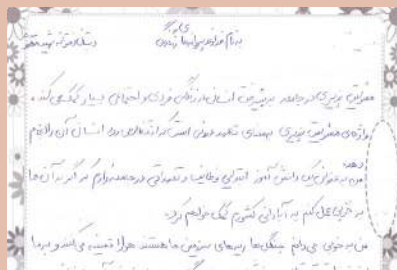 به نام خداوند
مسئولیت پذیری در جامعه به پیشرفت انسان در زندگی فردی و اجتماعی بسیار کمک می کند.
واژه ی مسئولیت پذیری به معنای تعهد درونی است که انتظار می رود انسان آن را انجام
دهد.
من به عنوان یک دانش آموز ابتدایی وظایف و تعهداتی در جامعه دارم که اگر به آن ها
به خوبی عمل کنم به آبادانی کشورم کمک خواهم کرد.
من به خوبی می دانم جنگل ها ریه های سرزمین ما هستند هوا را تصفیه می کنند و به ما